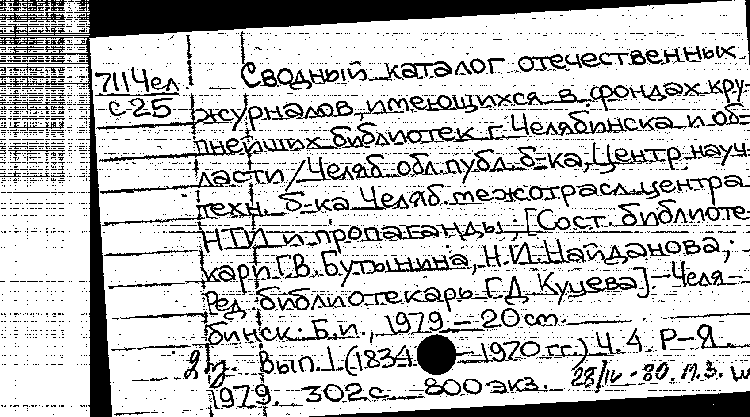 711Чел
с25
Сводный каталог отечественных
журналов, имеющихся в фондах кру-
пнейших библиотек г. Челябинска и об-
ласти / Челяб. обл. публ. б-ка, Центр. науч.
техн. б-ка Челяб. межотрасл. центра
НТИ и пропаганды; [Сост. библиоте-
кари Г.В. Бутынина, Н.И. Найданова;
Ред. библиотекарь Г.Д. Куцева]. - Челя-
бинск: Б.и., 1979. - 20 см.
Вып. 1. (1834 - 1970 гг.) Ч. 4. Р-Я.
1979. 302 с. 800 экз. 28/IV-80. П.3.